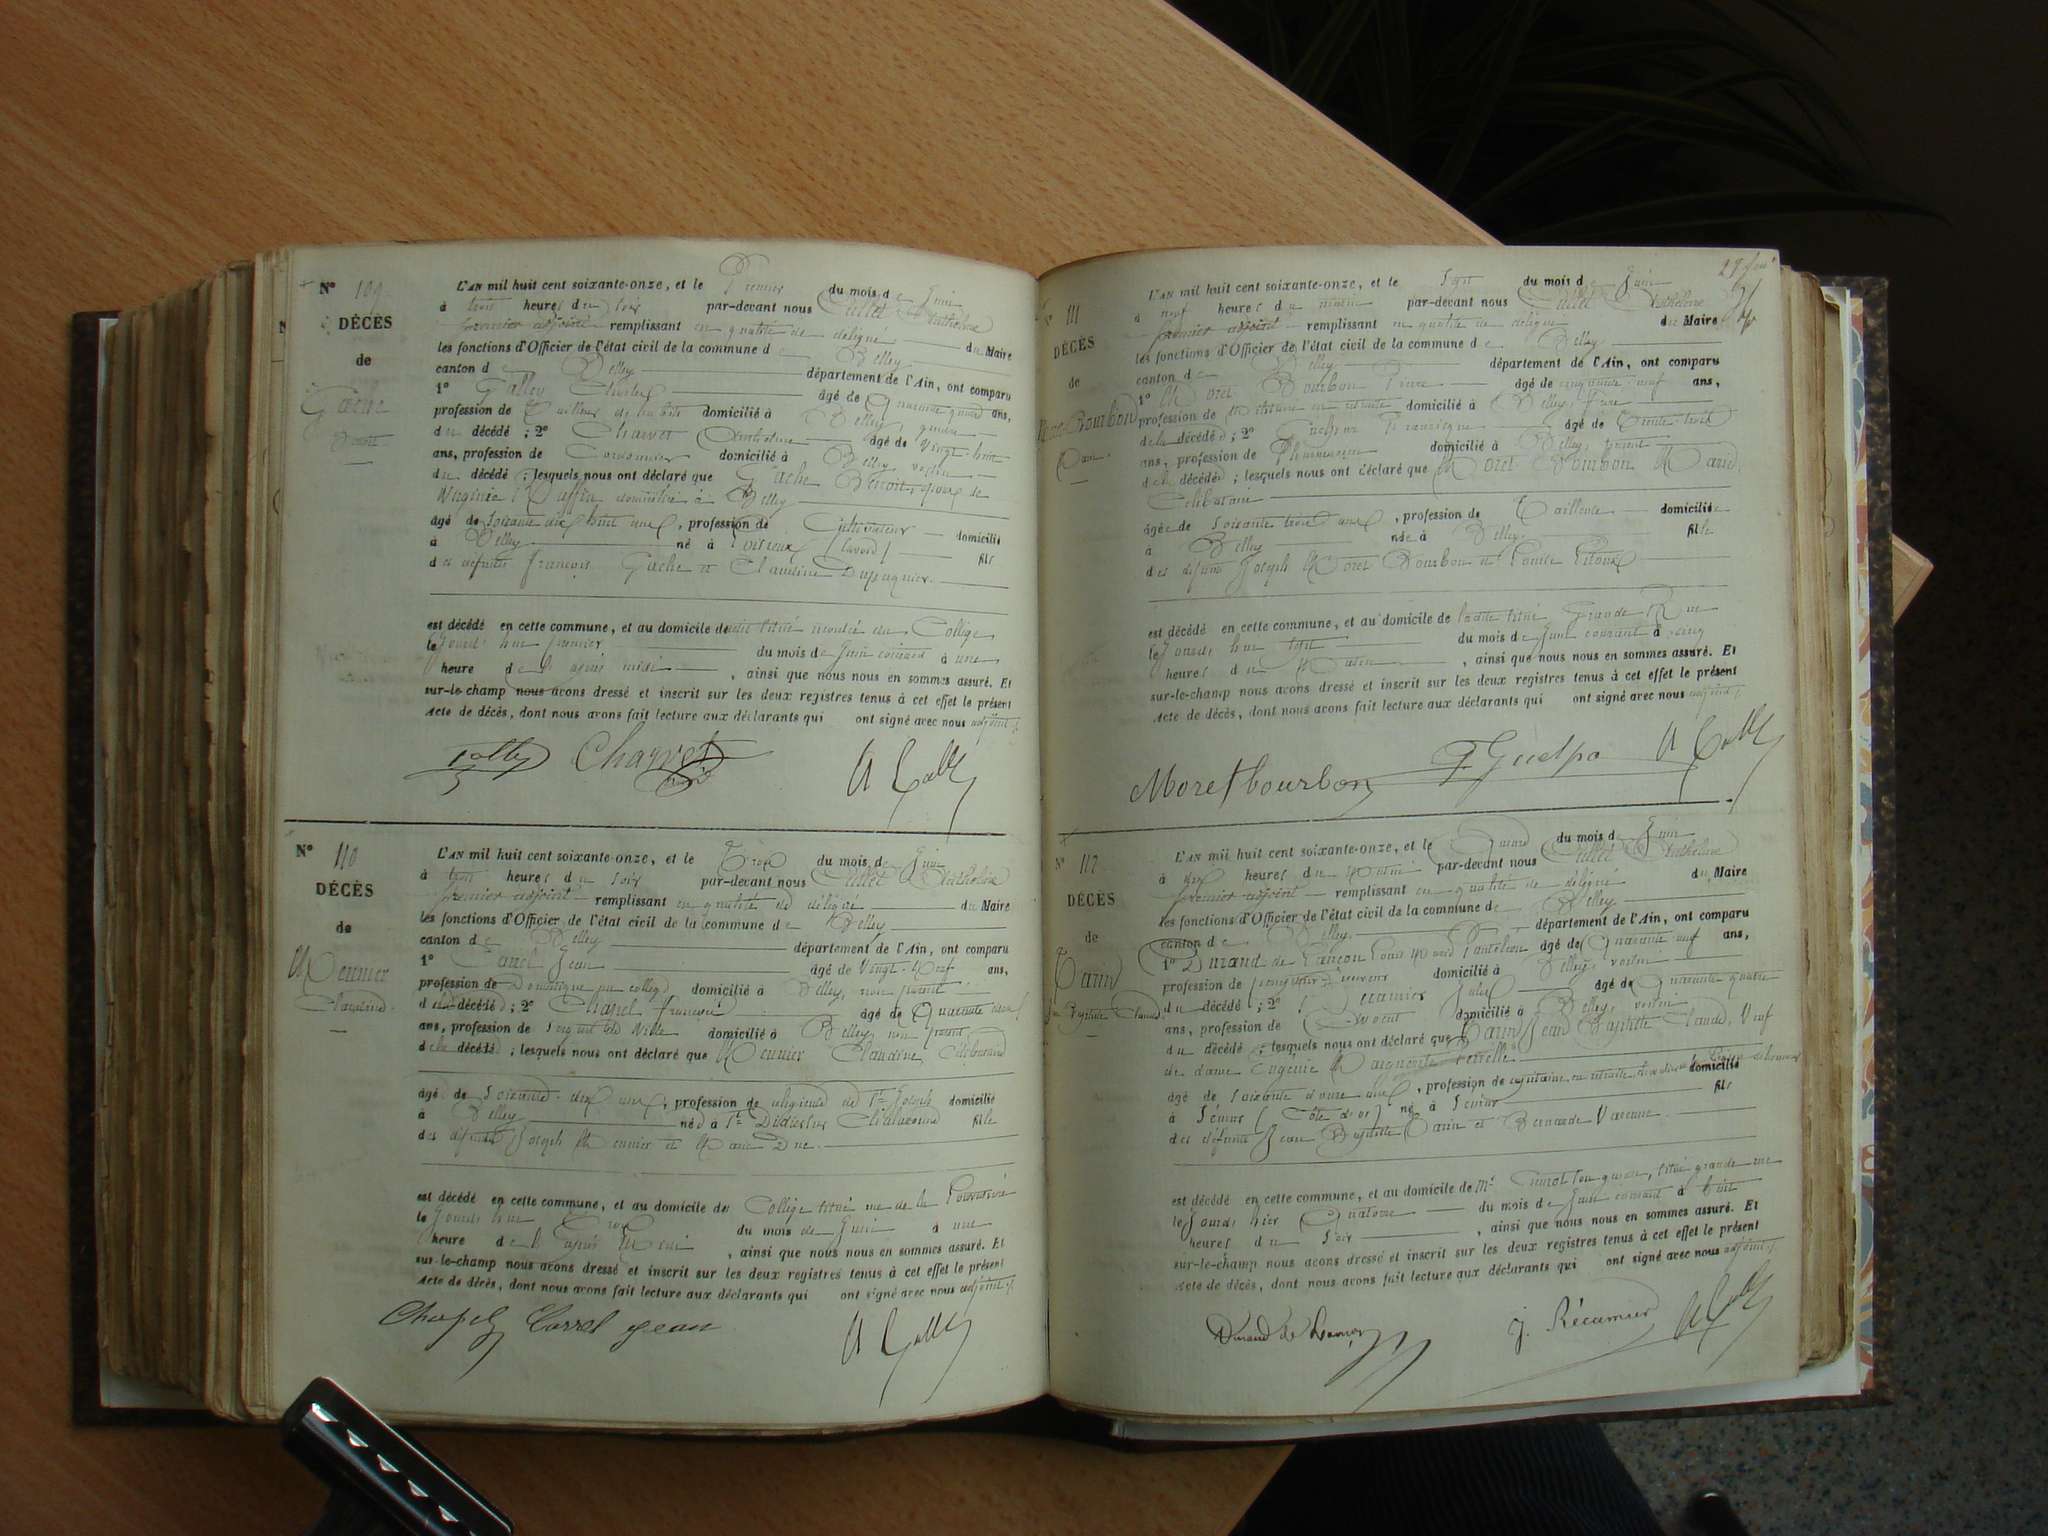 N° 109
DÉCÈS
de
Gache
Benoit
L'AN mil huit cent soixante-onze, et le Premier du mois de Juin
à trois heures du soir par-devant nous Cullet Anthelme
premier adjoint remplissant en qualité de délégué du Maire
les fonctions d'Officier de l'état civil de la commune de Belley
canton de Belley département de l'Ain, ont comparu
1° Galley Charles âgé de Quarante quatre ans,
profession de Tailleur de habits domicilié à Belley, gendre
du décédé ; 2° Charvet Anthelme âgé de Vingt-huit
ans, profession de Cordonnier domicilié à Belley voisin
du décédé ; lesquels nous ont déclaré que Gache Benoit, époux de
Virginie Ruffin domicilié à Belley
âgé de soixante dix huit ans, profession de Cultivateur domicilié
à Belley né à (Savoie) fils
des défunts françois Gache et Claudine
est décédé en cette commune, et au domicile de situé montée du Collège
le jourd'hui premier du mois de Juin courant à une
heure de l'après midi, ainsi que nous nous en sommes assuré. Et
sur-le-champ nous avons dressé et inscrit sur les deux registres tenus à cet effet le présent
Acte de décès, dont nous avons fait lecture aux déclarants qui ont signé avec nous adjoint
Galley Charvet A Cullet
N° 110
DÉCÈS
de
Meunier
Claudine
L'AN mil huit cent soixante-onze, et le Trois du mois de Juin
à trois heures du soir par-devant nous Cullet Anthelme
premier adjoint remplissant en qualité de délégué du Maire
les fonctions d'Officier de l'état civil de la commune de Belley
canton de Belley département de l'Ain, ont comparu
1° Carrel Jean âgé de Vingt-Neuf ans,
profession de Domestique au collège domicilié à Belley, non parent
de la décédée ; 2° Chapel françois âgé de Quarante
ans, profession de Sergent de Ville domicilié à Belley, non parent
de la décédée ; lesquels nous ont déclaré que Meunier Claudine Célibataire
âgé de Soixante-dix ans, profession de religieuse de St Joseph domicilié
à Belley née à St fille
des défunts Joseph Meunier et Marie Duc
est décédé en cette commune, et au domicile du Collège situé rue de la
le jourd'hui Trois du mois de Juin à une
heure de l'après Midi, ainsi que nous nous en sommes assuré. Et
sur-le-champ nous avons dressé et inscrit sur les deux registres tenus à cet effet le présent
Acte de décès, dont nous avons fait lecture aux déclarants qui ont signé avec nous adjoint
Chapel Carrel jean A Cullet
N° 111
DÉCÈS
de
Moret-Bourbon
Marie
L'AN mil huit cent soixante-onze, et le Sept du mois de Juin
à neuf heures du matin par-devant nous Cullet Anthelme
premier adjoint remplissant en qualité de délégué du Maire
les fonctions d'Officier de l'état civil de la commune de Belley
canton de Belley département de l'Ain, ont comparu
1° Moret Bourbon Pierre âgé de cinquante neuf ans,
profession de en retraite domicilié à Belley, frère
de la décédée ; 2° Guelpa âgé de Trente-trois
ans, profession de domicilié à Belley,
de la décédée ; lesquels nous ont déclaré que Moret Bourbon Marie
Célibataire
âgée de soixante trois ans, profession de Tailleuse domiciliée
à Belley née à Belley fille
des défunts Joseph Moret Bourbon et
est décédé en cette commune, et au domicile de situé Grande Rue
le jourd'hui sept du mois de Juin courant à cinq
heures du Matin, ainsi que nous nous en sommes assuré. Et
sur-le-champ nous avons dressé et inscrit sur les deux registres tenus à cet effet le présent
Acte de décès, dont nous avons fait lecture aux déclarants qui ont signé avec nous adjoint
Moret bourbon F Guelpa A Cullet
N° 112
DÉCÈS
de
Tarin
Jean Baptiste Claude
L'AN mil huit cent soixante-onze, et le Quinze du mois de Juin
à dix heures du Matin par-devant nous Cullet Anthelme
premier adjoint remplissant en qualité de délégué du Maire
les fonctions d'Officier de l'état civil de la commune de Belley
canton de Belley département de l'Ain, ont comparu
1° Durand de Lançon Louis âgé de Quarante neuf ans,
profession de domicilié à Belley, voisin
du décédé ; 2° Récamier Jules âgé de Quarante quatre
ans, profession de Avocat domicilié à Belley, voisin
du décédé ; lesquels nous ont déclaré que Tarin Jean Baptiste Claude, Veuf
de dame Eugénie Marguerite
âgé de soixante onze ans, profession de capitaine en retraite domicilié
à Sémur (Côte d'or) né à Sémur fils
des défunts Jean Baptiste Tarin et Bernarde Varenne
est décédé en cette commune, et au domicile de Mr situé grande rue
le jourd'hier Quatorze du mois de Juin courant à huit
heures du Soir, ainsi que nous nous en sommes assuré. Et
sur-le-champ nous avons dressé et inscrit sur les deux registres tenus à cet effet le présent
Acte de décès, dont nous avons fait lecture aux déclarants qui ont signé avec nous adjoint
Durand de Lançon J. Récamier A Cullet